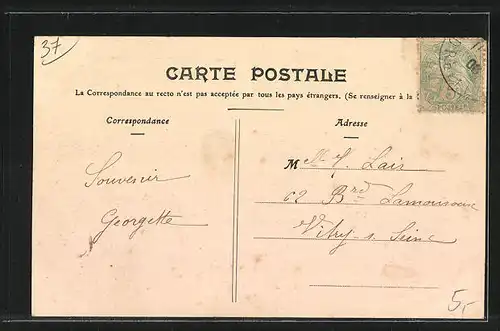 37
CARTE POSTALE
La Correspondance au recto n'est pas acceptée par tous les pays étrangers. (Se renseigner à la
Correspondance
Adresse
Souvenir
Georgette
Melle Y. Lair
62 Brd Lamouroux
Vitry-s-Seine
5,-